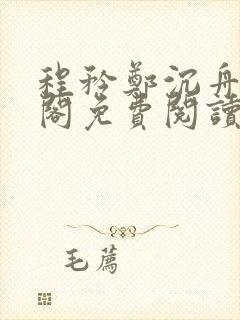 程矜鄭沉舟
閣免費閱讀
毛薦